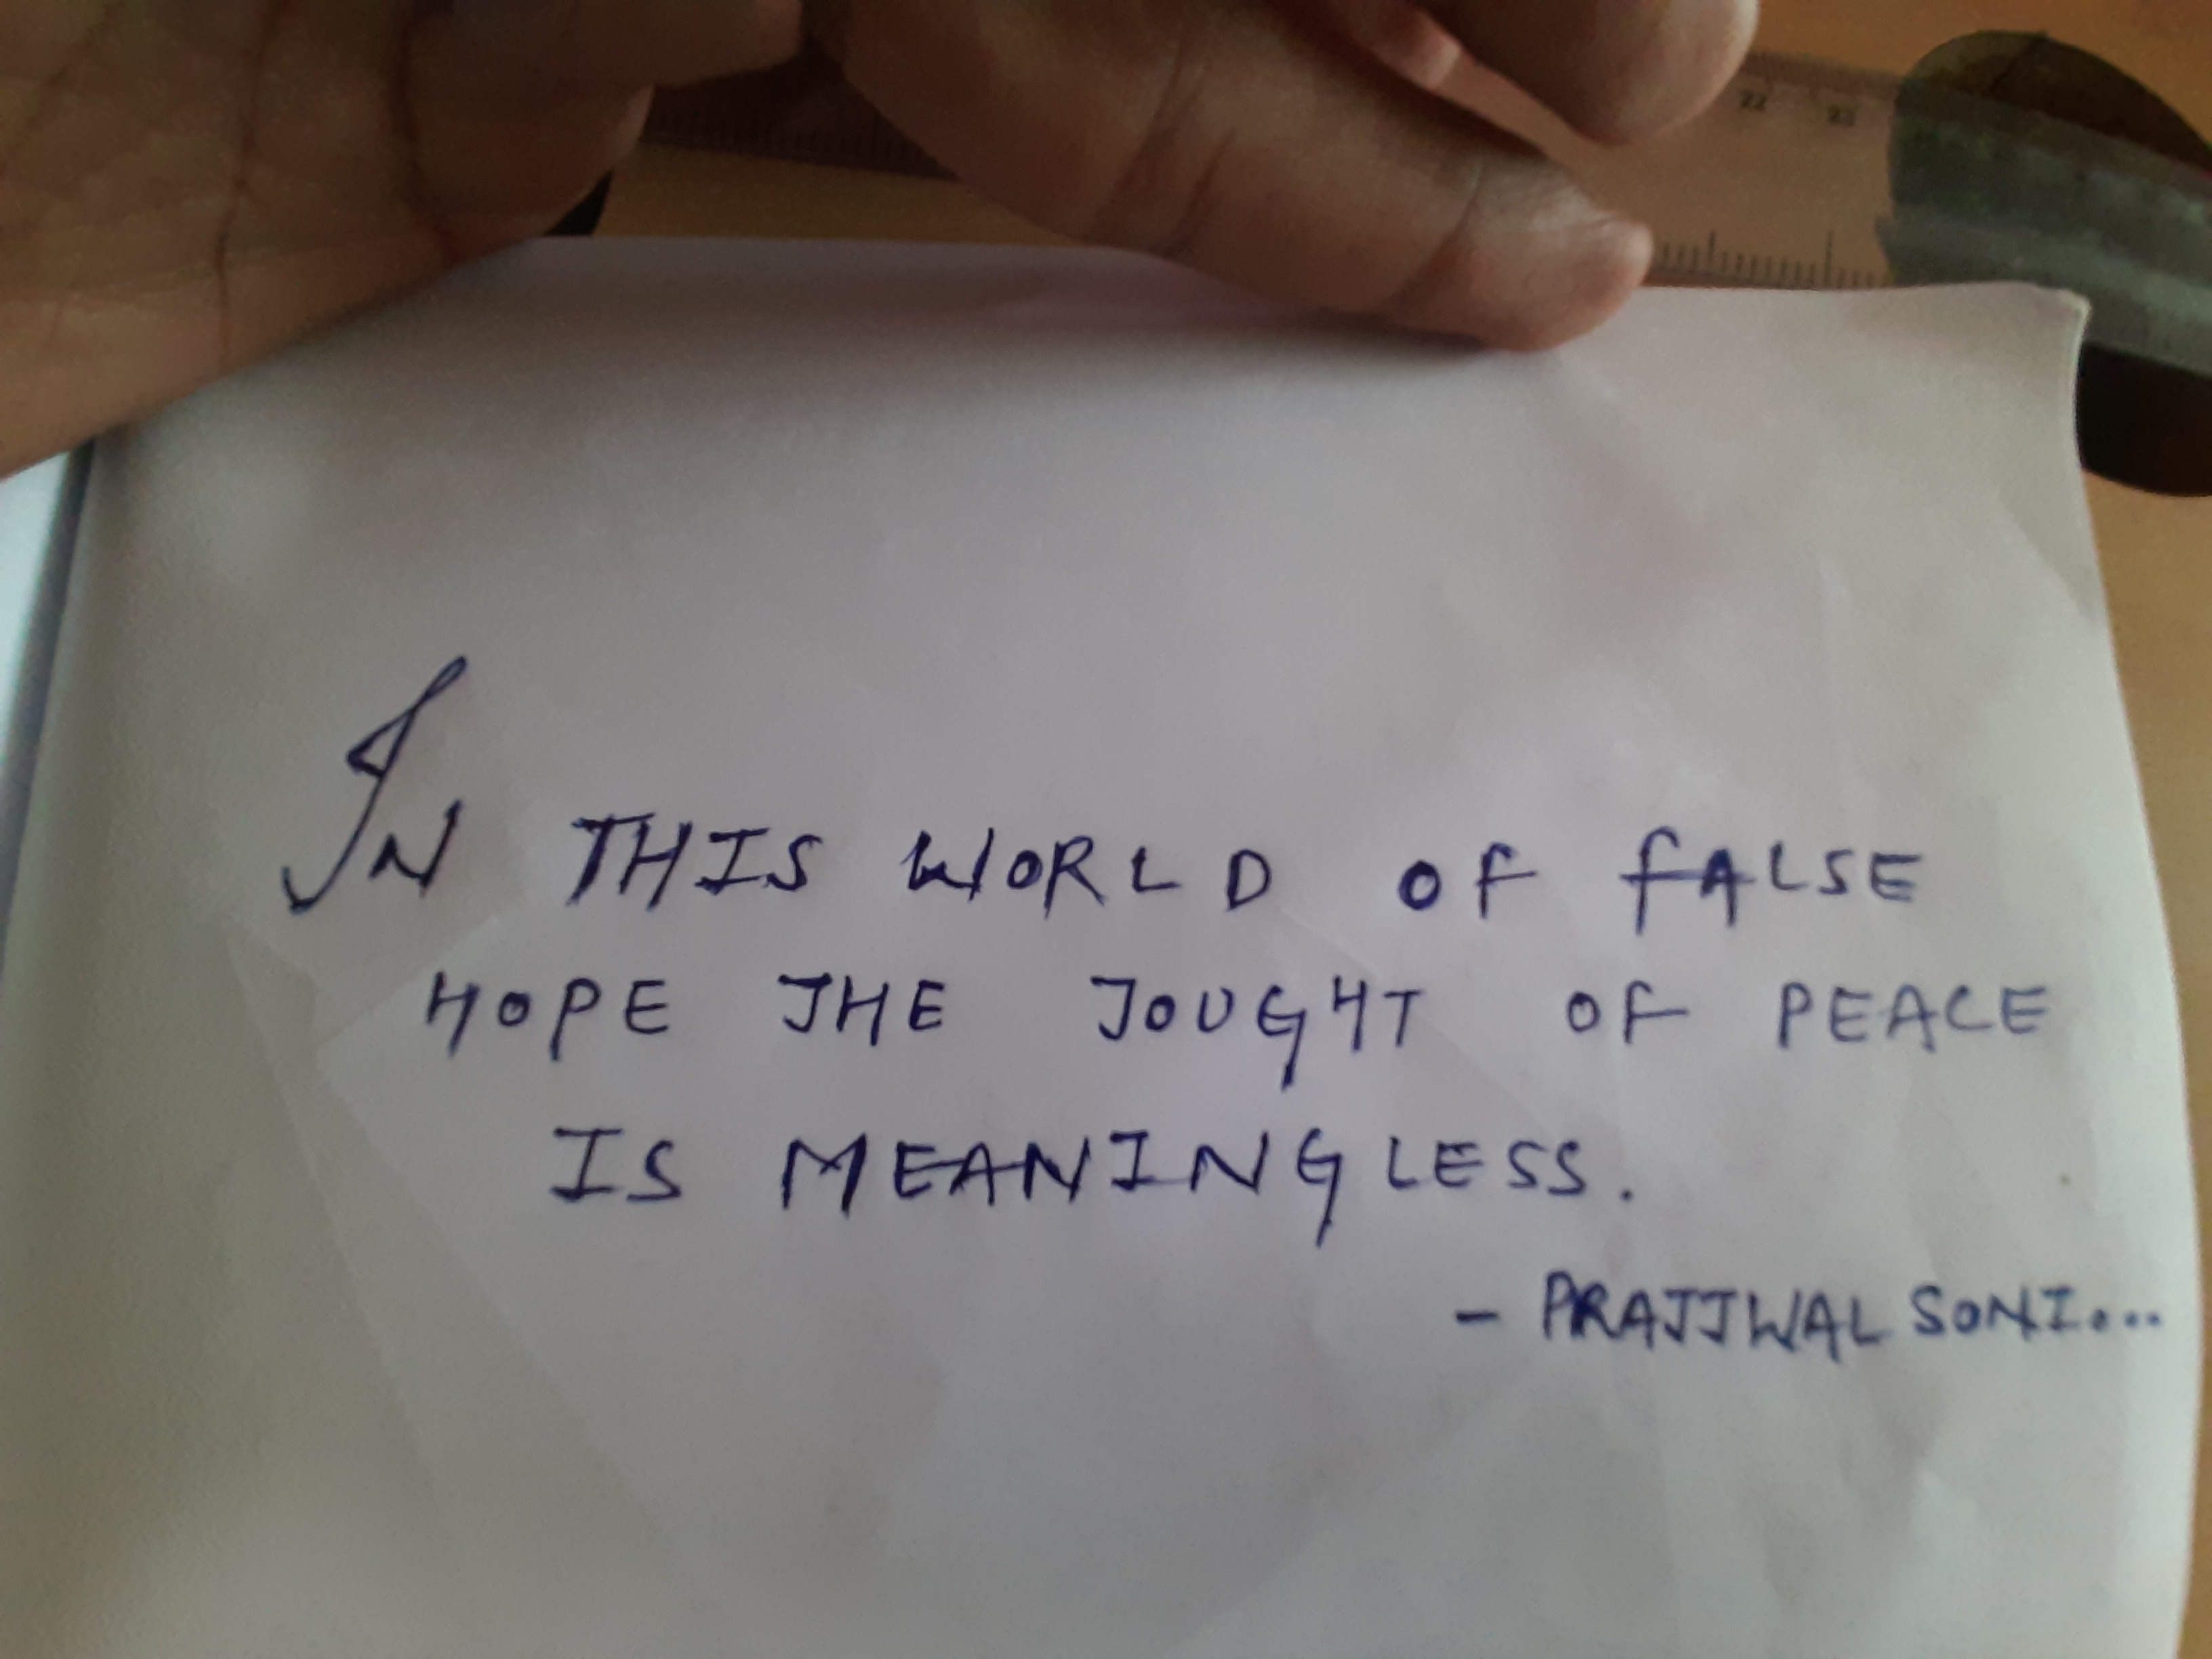 IN THIS WORLD OF FALSE
HOPE THE TOUGHT OF PEACE
IS MEANINGLESS.
- PRAJJWAL SONI....
22
23